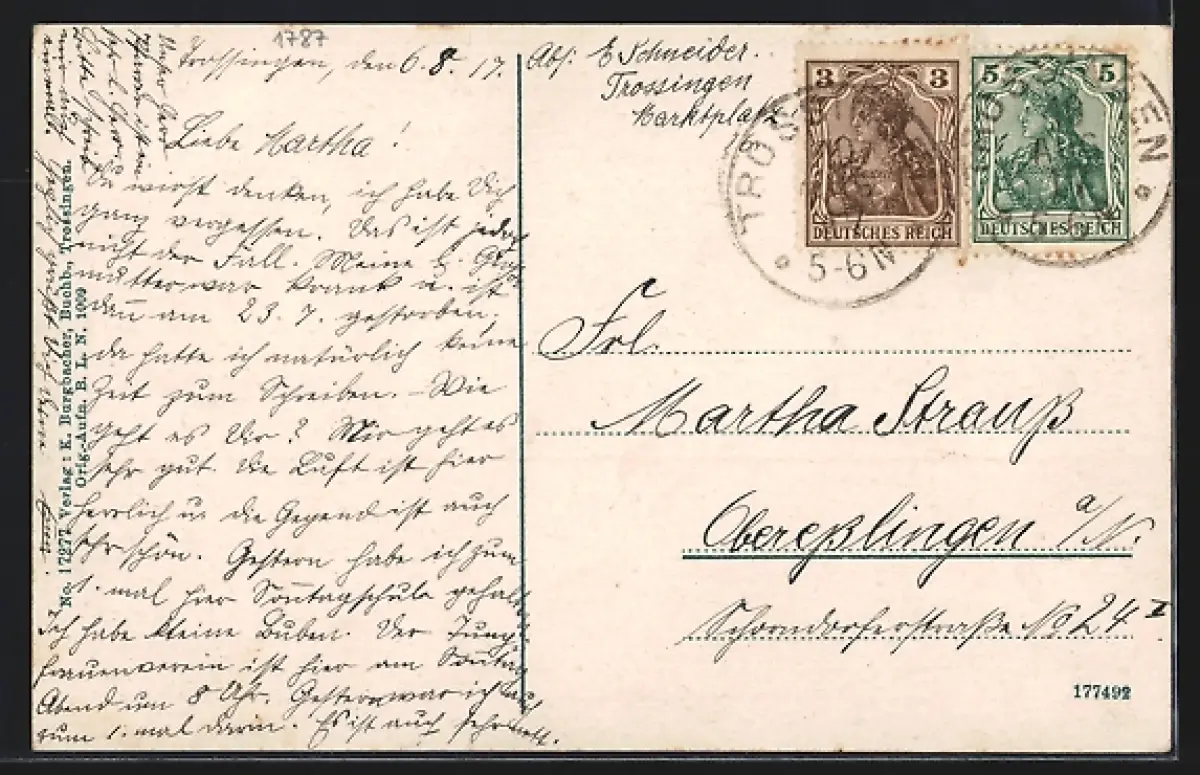 1787
Trossingen, den 6. 8. 17.
Liebe Martha!
Du wirst denken, ich habe Dich
ganz vergessen. Das ist jedoch
nicht der Fall. Meine l. Groß-
mutter war krank u. ist
dan̄ am 23. 7. gestorben,
da hatte ich natürlich keine
Zeit zum Schreiben. – Wie
geht es Dir? Mir geht es
sehr gut. Die Luft ist hier
herrlich u. die Gegend ist auch
sehr schön. Gestern habe ich zum
1. mal hier Son̄tagschule gehalten
Ich habe kleine Buben. Der Jung-
frauenverein ist hier am Son̄tag
Abend um 8 Uhr. Gestern war ich auch
zum 1. mal darin. Es ist auch sehr nett.
Herzlich grüßt Dich Deine
No. 17277. Verlag: K. Burgbacher, Buchb., Trossingen.
Orig-Aufn. B. L. N. 1009
Abs. E Schneider.
Trossingen
Marktplatz
3 3
DEUTSCHES REICH
5 5
DEUTSCHES REICH
TROSSINGEN
5-6 N
Frl.
Martha Strauß
Obereßlingen a/N.
Schorndorferstraße No 24 I
177492